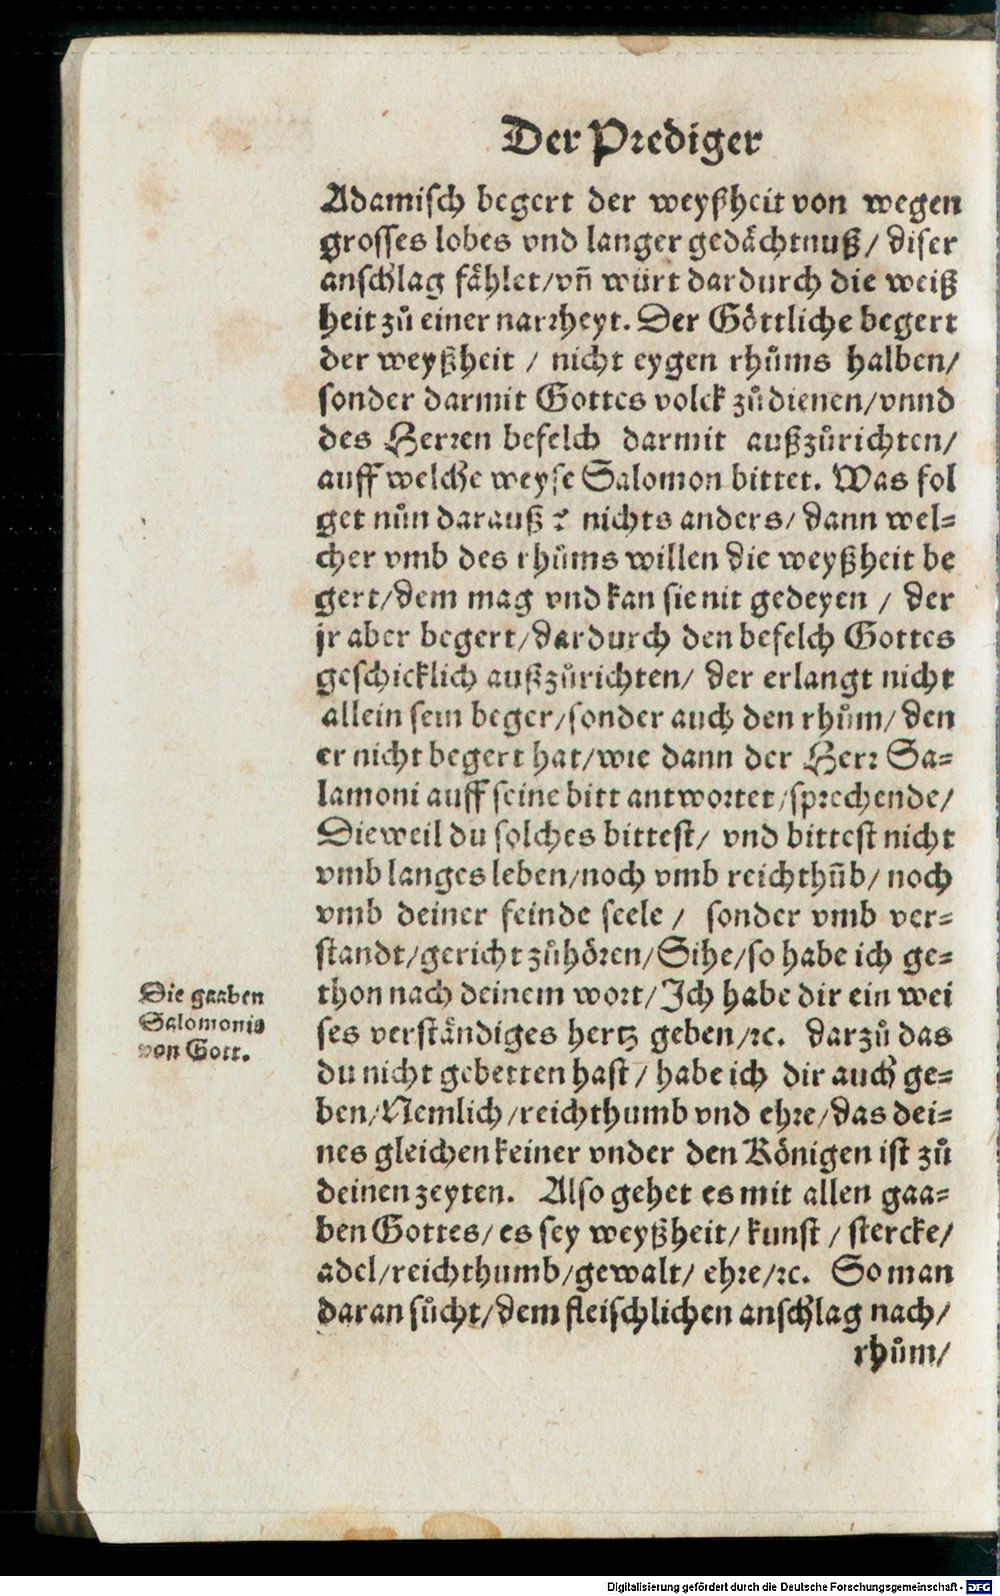 Der Prediger
Adamisch begert der weyßheit von wegen
grosses lobes vnd langer gedåchtnuß/ diser
anschlag fåhlet/vñ würt dardurch die weiß
heit zů einer narrheyt. Der Göttliche begert
der weyßheit / nicht eygen rhůms halben/
sonder darmit Gottes volck zůdienen/vnnd
des Herren befelch darmit außzůrichten/
auff welche weyse Salomon bittet. Was fol
get nůn darauß? nichts anders/ dann wel=
cher vmb des rhůms willen die weyßheit be
gert/dem mag vnd kan sie nit gedeyen / der
jr aber begert/dardurch den befelch Gottes
geschicklich außzůrichten/ der erlangt nicht
allein sein beger/sonder auch den rhům/ den
er nicht begert hat/wie dann der Herr Sa=
lamoni auff seine bitt antwortet/sprechende/
Dieweil du solches bittest/ vnd bittest nicht
vmb langes leben/noch vmb reichthůb/ noch
vmb deiner feinde seele / sonder vmb ver=
standt/gericht zůhören/Sihe/so habe ich ge=
thon nach deinem wort/Ich habe dir ein wei
Die gaaben
Salomonis
von Gott.
ses verståndiges hertz geben/ꝛc. darzů das
du nicht gebetten hast/ habe ich dir auch ge=
ben/Nemlich/reichthumb vnd ehre/das dei=
nes gleichen keiner vnder den Königen ist zů
deinen zeyten. Also gehet es mit allen gaa=
ben Gottes/ es sey weyßheit/ kunst / stercke/
adel/reichthumb/gewalt/ ehre/ꝛc. So man
daran sůcht/dem fleischlichen anschlag nach/
rhům/
Digitalisierung gefördert durch die Deutsche Forschungsgemeinschaft - DFG